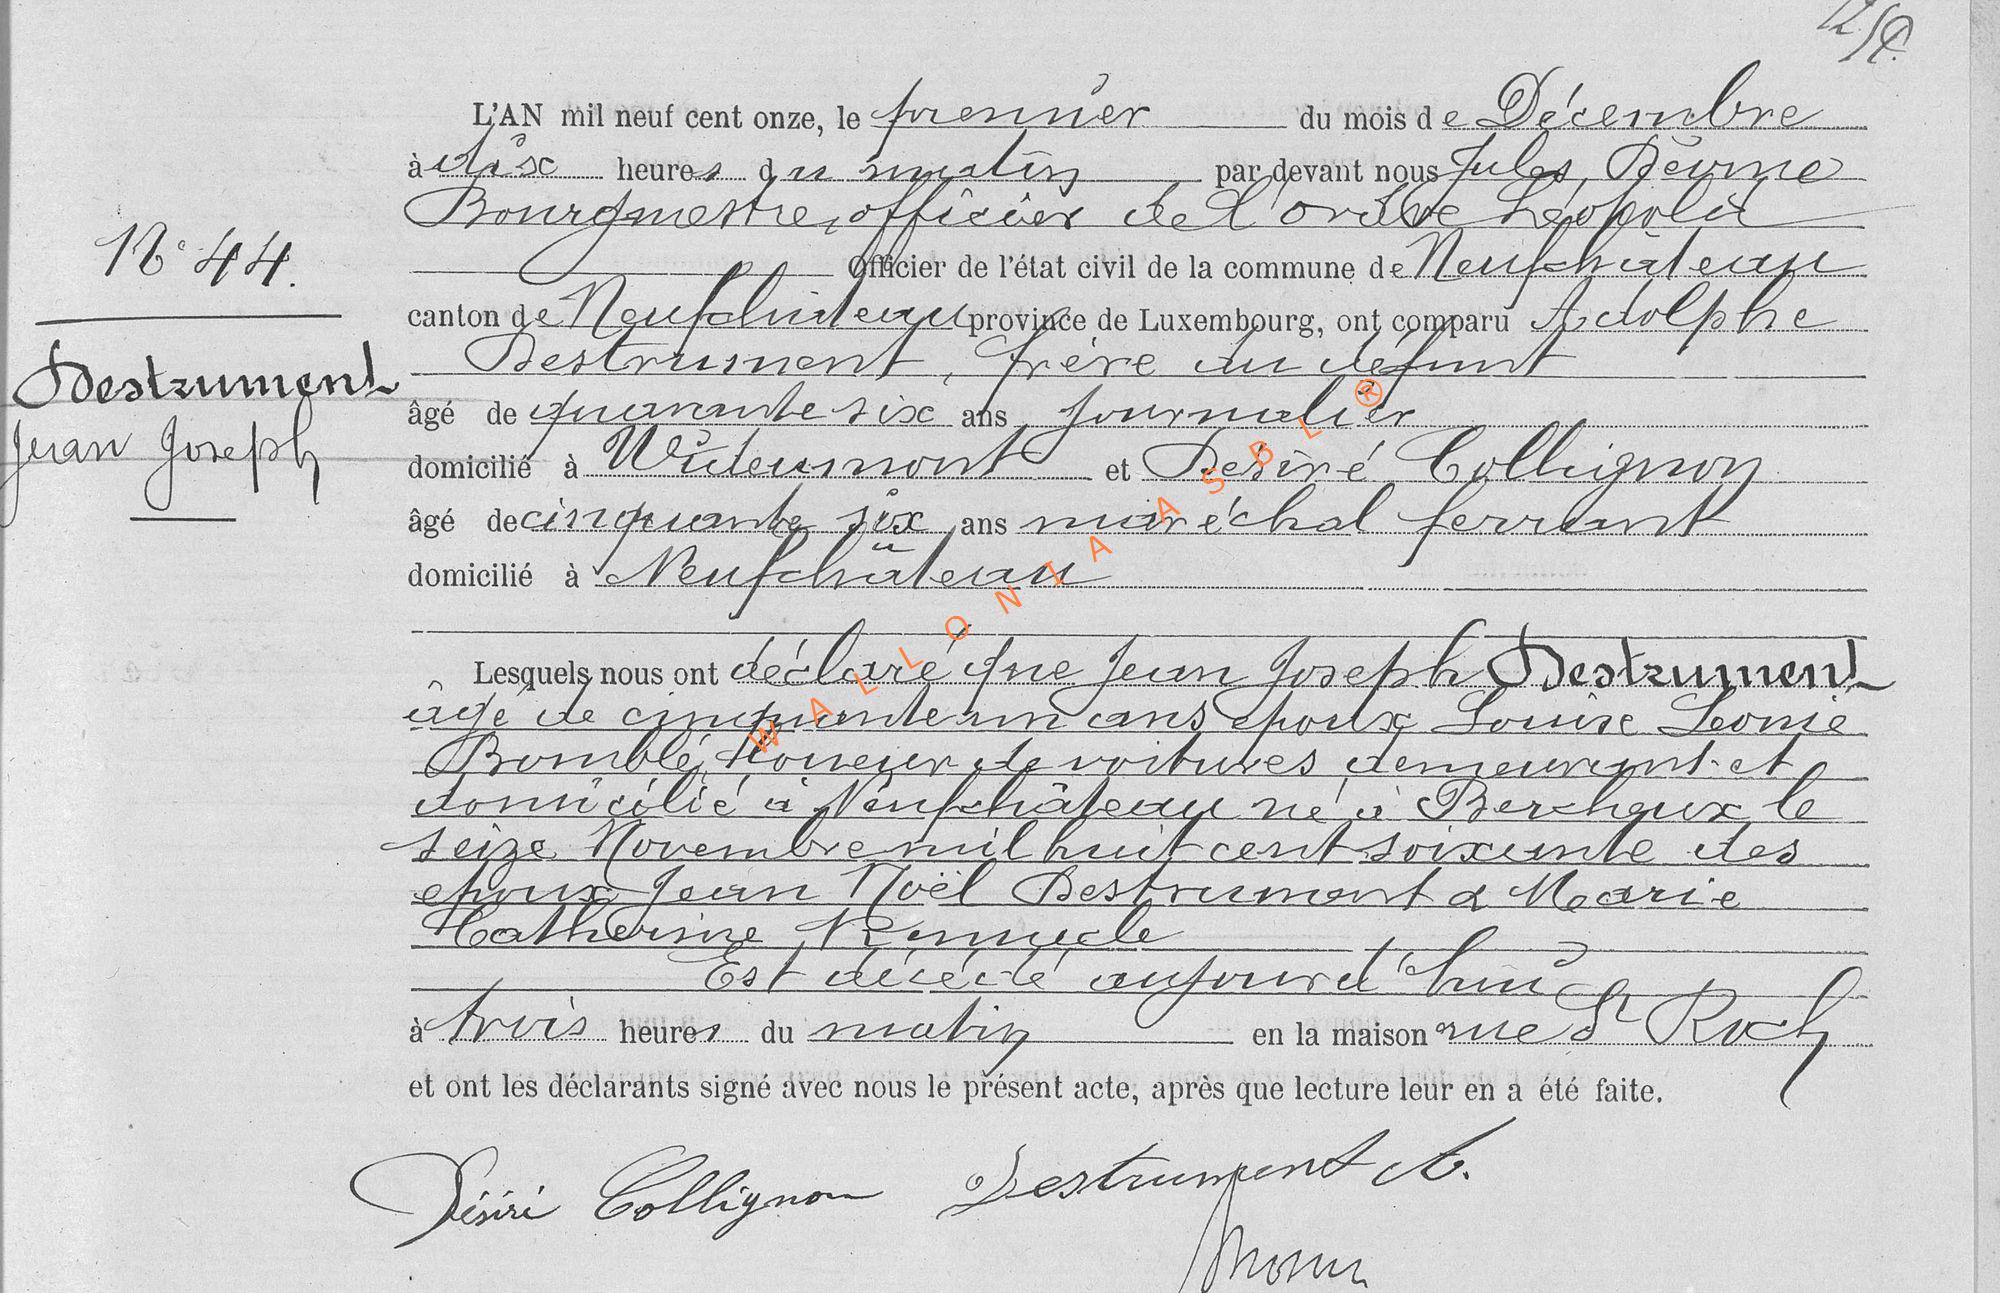 12/S.
L'AN mil neuf cent onze, le premier du mois de Décembre
à dix heures du matin par devant nous Jules
Bourgmestre, officier de l'ordre Léopold
Officier de l'état civil de la commune de Neufchâteau
N° 44.
canton de Neufchâteau province de Luxembourg, ont comparu Adolphe
Destrument, frère du défunt
Destrument
Jean Joseph
âgé de quarante six ans journalier
domicilié à Wideumont et Désiré Collignon
âgé de cinquante six ans maréchal ferrant
domicilié à Neufchâteau
WALLONIA ASBL ®
Lesquels nous ont déclaré que Jean Joseph Destrument
âgé de cinquante un ans époux Louise Léonie
Bomblé, loueur de voitures demeurant et
domicilié à Neufchâteau né à Bercheux le
seize Novembre mil huit cent soixante des
époux Jean Noël Destrument & Marie
Catherine
Est décédé aujourd'hui
à trois heures du matin en la maison rue St Roch
et ont les déclarants signé avec nous le présent acte, après que lecture leur en a été faite.
Désiré Collignon Destrument A.